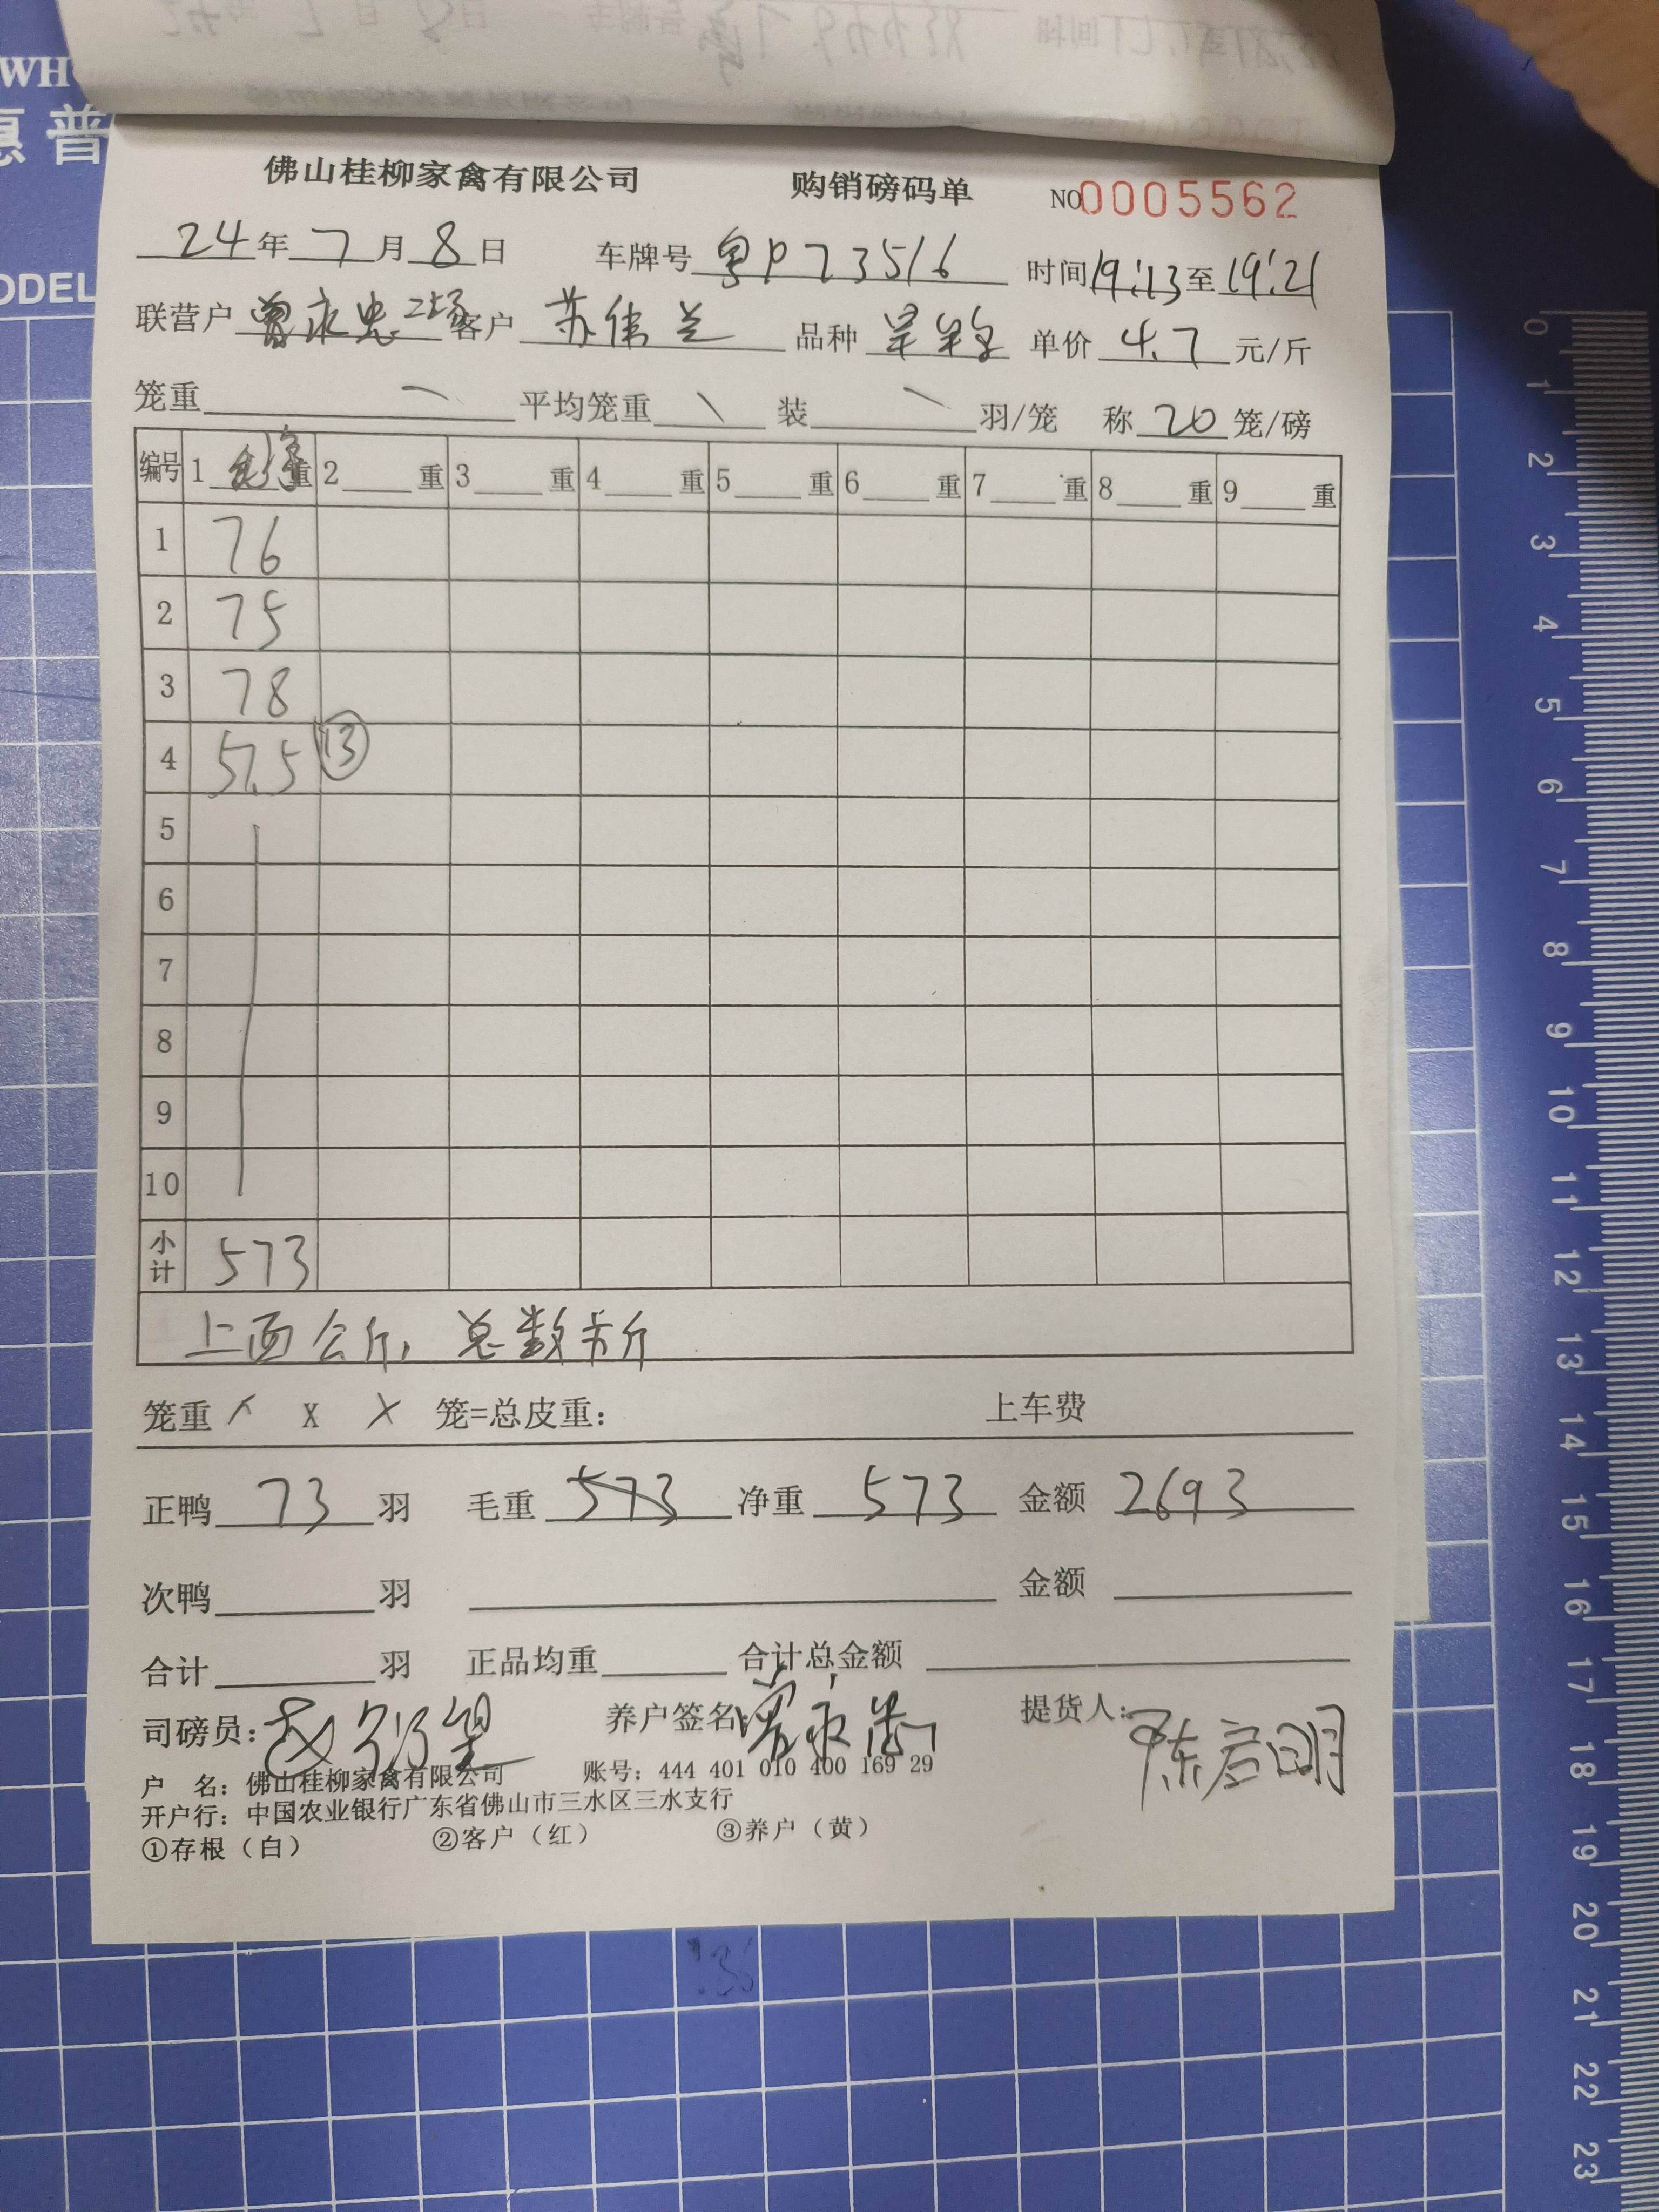 WH
惠普
ODEL
佛山桂柳家禽有限公司 购销磅码单 NO 0005562
24年7月8日 车牌号 粤P73516 时间 19:13至19:21
联营户 曾永忠二场 客户 苏伟兰 品种 单价 4.7 元/斤
笼重 平均笼重 装 羽/笼 称 20 笼/磅
编号 1 净重 2 重 3 重 4 重 5 重 6 重 7 重 8 重 9 重
1 76
2 75
3 78
4 57.5 ⑬
5
6
7
8
9
10
小计 573
上面公斤，总数 斤
笼重 X 笼=总皮重： 上车费
正鸭 73 羽 毛重 573 净重 573 金额 2693
次鸭 羽 金额
合计 羽 正品均重 合计总金额
司磅员： 养户签名 曾永忠 提货人：陈启明
户 名：佛山桂柳家禽有限公司 账号：444 401 010 400 169 29
开户行：中国农业银行广东省佛山市三水区三水支行
①存根（白） ②客户（红） ③养户（黄）
0
1
2
3
4
5
6
7
8
9
10
11
12
13
14
15
16
17
18
19
20
21
22
23